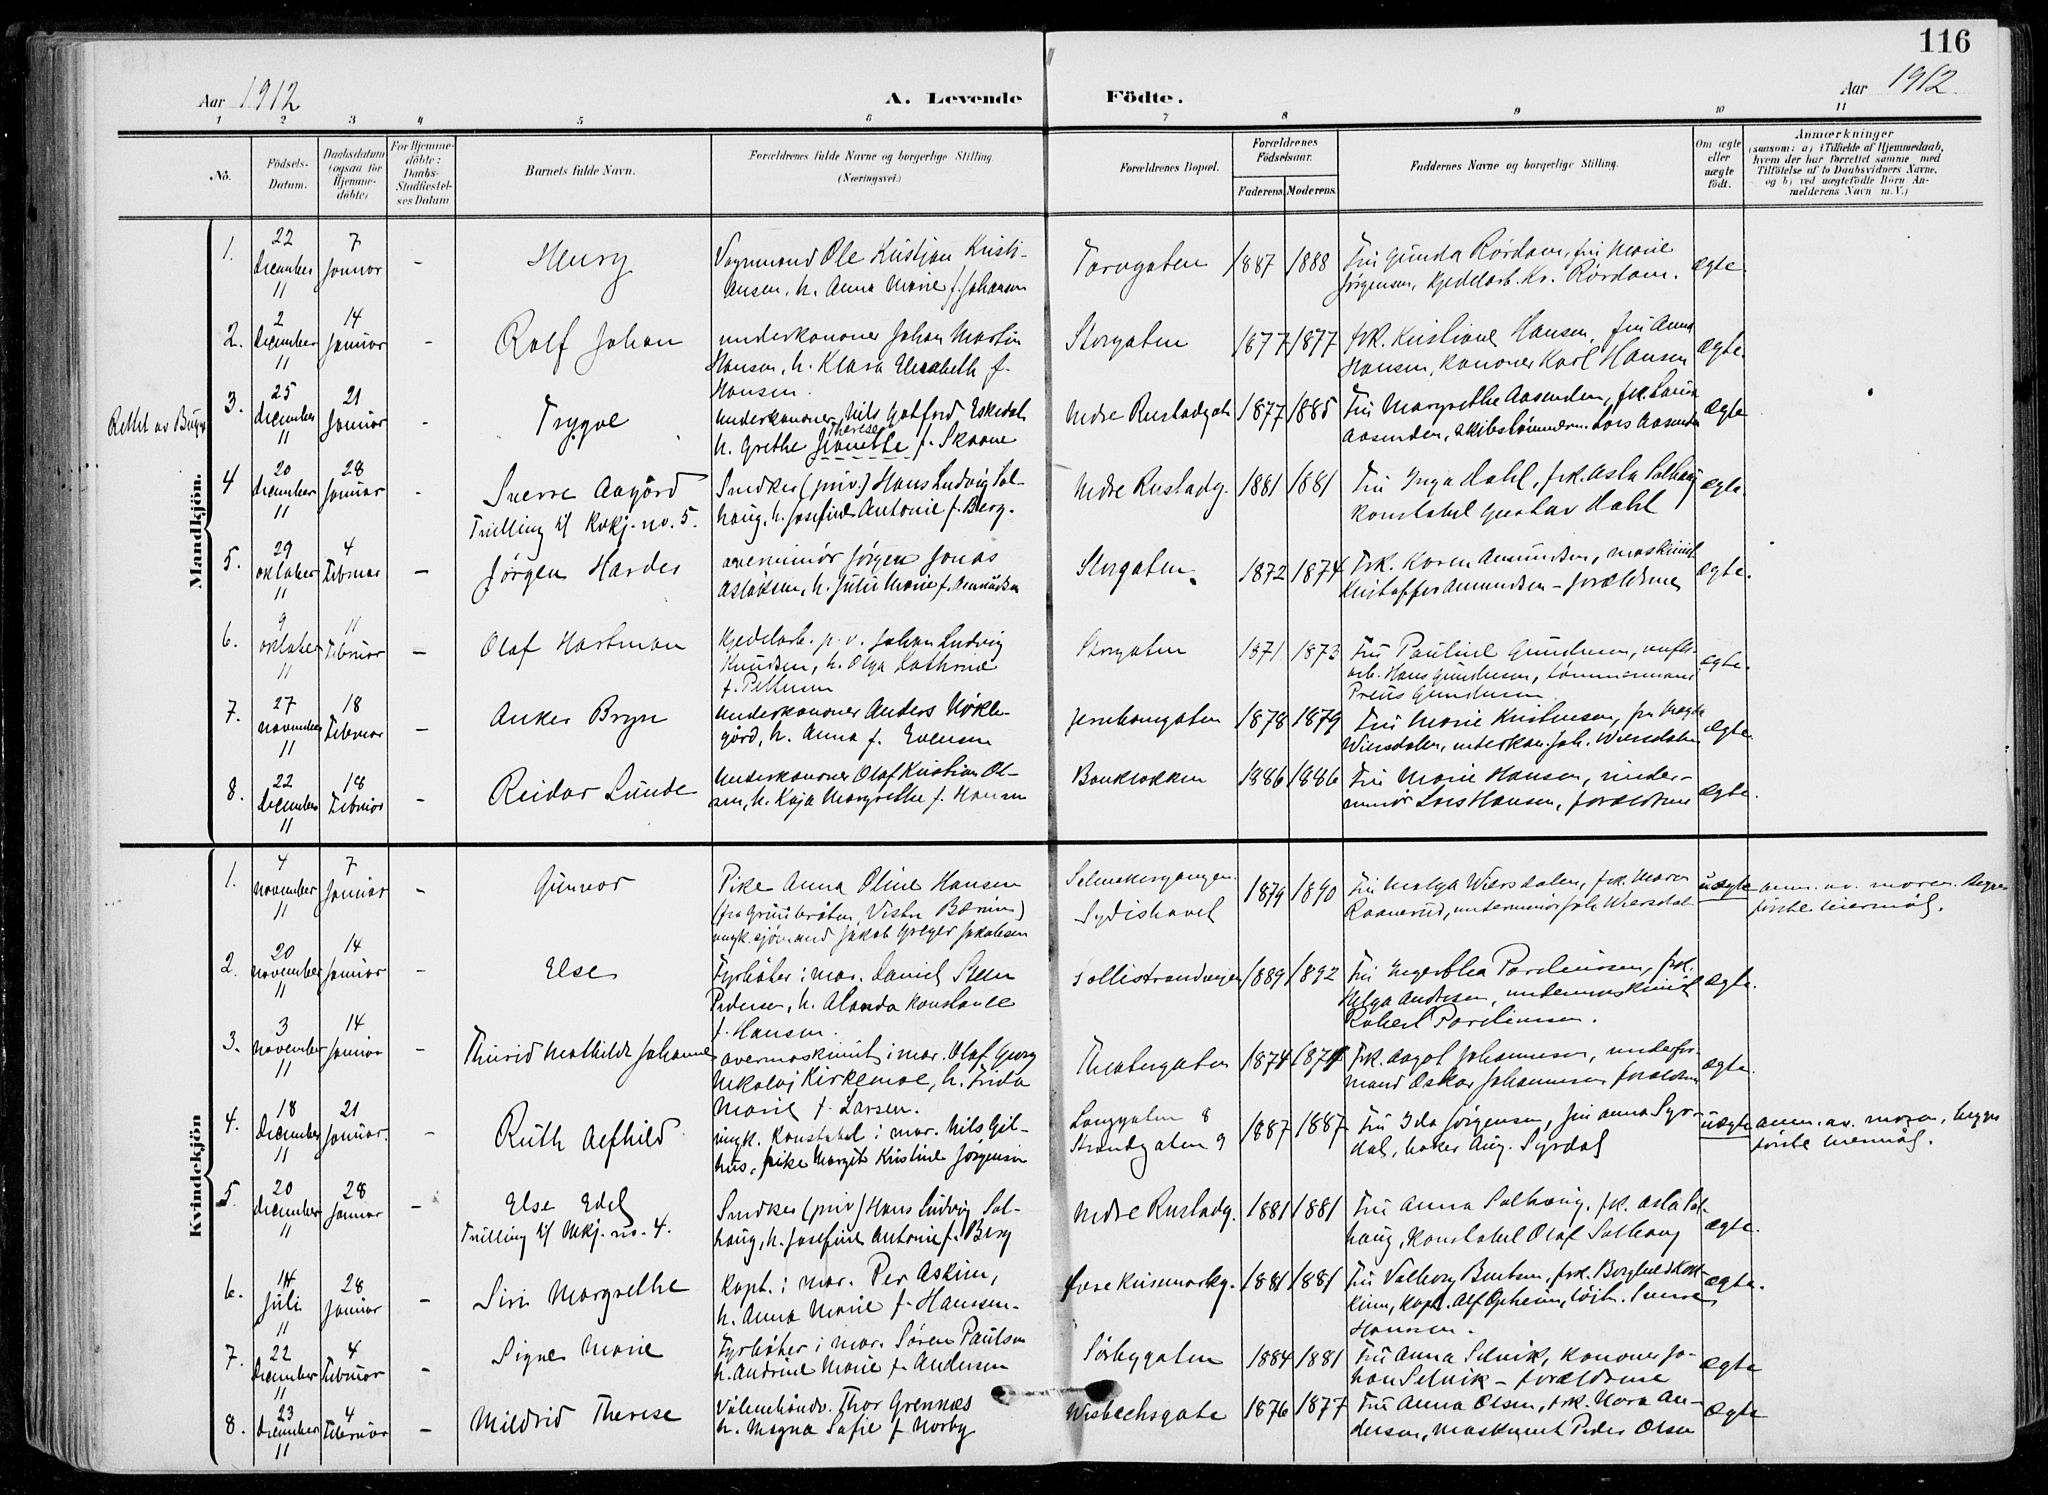 116
Aar 1912
A. Levende Födte.
Aar 1912.
1 2 3 4 5 6 7 8 9 10 11
No.
Födsels-
Datum.
Daabsdatum
(ogsaa for
Hjemme-
döbte)
For Hjemme-
döbte:
Daabs-
Stadfæstel-
ses Datum
Barnets fulde Navn.
Forældrenes fulde Navne og borgerlige Stilling.
(Næringsvei.)
Forældrenes Bopæl.
Forældrenes
Födselsaar.
Faderens. Moderens.
Faddernes Navne og borgerlige Stilling.
Om ægte
eller
uægte
födt.
Anmærkninger
(saasom: a) i Tilfælde af Hjemmedaab,
hvem der har forrettet samme med
Tilföielse af to Daabsvidners Navne.
og b) ved uægtefödte Börn An-
melderens Navn m. V.)
Mandkjön.
1. 22 december 11
7 januar
-
Henry
Vognmand Ole Kristian Kristi-
ansen, h. Anna Marie f. Johansen
Torvgaten
1887 1888
Fru Gunda Rørdam, fru Marie
Jørgensen, kjedelarb. Kr. Rørdam.
ægte.
2. 2 december 11
14 januar
-
Rolf Johan
underkanoner Johan Martin
Hansen, h. Klara Elisabeth f.
Hansen.
Storgaten
1877 1877
frk. Kristiane Hansen, fru Anna
Hansen, kanoner Karl Hansen
ægte.
Rettet av
3. 25 december 11
21 januar
Trygve
Underkanoner Nils Gotfred Eskedal
Therese
h. Grethe Jeanette f. Skaane
Nedre Rustadgate
1877 1885
Fru Margrethe Aasenden, frk. Laura
Aasenden, skibstømmerm. Lars Aasenden
ægte
4 20 december 11
28 januar
-
Sverre Aagård
Tvilling t/ Kvkj. no. 5.
Snedker (priv.) Hans Ludvig Sol-
haug, h. Josefine Antonie f. Berg.
Nedre Rustadg.
1881 1881
Fru Inga Dahl, frk. Asta Solhaug
konstabel Gustav Dahl
ægte.
5. 29 oktober 11
4 Februar
-
Jørgen Harder
overminør Jørgen Jonas
Aslaksen, h. Julie Marie f. Amundsen
Storgaten.
1872 1874
Frk. Karen Amundsen, maskinist
Kristoffer Amundsen - forældrene
ægte.
6. 9 oktober 11
11 Februar
-
Olaf Hartman
Kjedelarb. p. v. Johan Ludvig
Knudsen, h. Olga Kathrine
f. Pettersen
Storgaten
1871 1873
Fru Pauline Gundersen,
arb. Hans Gundersen, tømmermand
Preus Gundersen
ægte.
7. 27 november 11
18 Februar
-
Anker Bryn
Underkanoner Anders Nøkle-
gård, h. Anna f. Evensen
Jernbanegaten
1878 1879
Fru Marie Kristensen, fru Magda
Wiersdalen, underkan. Joh. Wiersdalen
ægte.
8. 22 december 11
18 Februar
-
Reidar Lunde
Underkanoner Olaf Kristian Ol-
sen, h. Kaja Margrethe f. Hansen
Bankløkken
1886 1886
Fru Marie Hansen, under-
minør Lars Hansen, forældrene
ægte.
Kvindekjön
1. 4 november 11
7 januar
-
Gunvor
Pike Anna Oline Hansen
(fra Grinibråten, Vestre Bærum)
ungk. sjømand Jakob Greger Jakobsen
Sydishavet
1879 1890
Fru Helga Wiersdalen, frk. Maren
Raanerud, underminør Joh. Wiersdal
uægte
anm. av moren. Begges
første leiermål.
2. 20 november 11
14 januar
-
Else
Fyrbøter i mar. Daniel Steen
Pedersen, h. Alanda Konstance
f. Hansen.
Tollistrandveien
1889 1892
Fru Ingertha Pardiussen, frk.
Helga Andresen, undermaskinist
Robert Pardiussen.
ægte.
3. 3 november 11
14 januar
-
Thurid Mathilde Johanne
overmaskinist i mar. Olaf Georg
Nikolai Kirkemoe, h. Frida
Marie f. Larsen.
Theatergaten
1874 1874
Frk. Aagot Johannesen, underfor-
mand Oskar Johannesen forældrene
ægte.
4. 18 december 11
21 januar.
-
Ruth Alfhild
ungk. konstabel i mar. Nils Gil-
hus, pike Margit Kristine Jørgensen
Langgaten 8
Strandgaten 9
1887 1887
Fru Ida Jørgensen, fru Anna Syr-
dal, baker Aug. Syrdal
uægte
anm. av moren, begges
første leiermål.
5 20 december 11
28 januar
-
Else Edel
Tvilling t/ Mkj. no. 4.
Snedker (priv) Hans Ludvig Sol-
haug, h. Josefine Antonie f. Berg
Nedre Rustadg.
1881 1881
Fru Anna Solhaug, frk. Asta Sol-
haug, konstabel Olaf Solhaug
ægte.
6. 14 juli 11
28 januar
-
Siri Margrethe
kapt. i mar. Per Askim,
h. Anna Marie f. Hanssen.
1881 1881
Fru Valborg Bentsen, frk. Borghild
kapt. Alf Opheim, løjt. Sverre
Hanssen.
ægte.
7. 22 december 11
4 Februar
-
Signe Marie
Fyrbøter i mar. Søren Paulsen
h. Andrine Marie f. Andersen
Sørbygaten
1884 1881
Fru Anna Selvik, kanoner Jo-
han Selvik - forældrene
ægte
8. 23 december 11
4 Februar
-
Mildrid Therese
Thor Grennæs
h. Magna Sofie f. Norby
Wisbechsgate
1876 1877
Fru Anna Olsen, frk. Nora An-
dersen, maskinist Peder Olsen
ægte